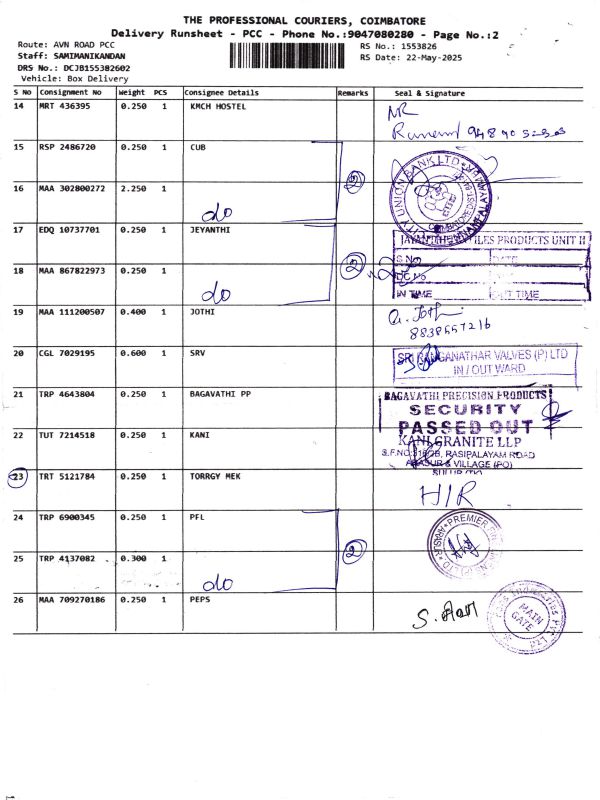 THE PROFESSIONAL COURIERS, COIMBATORE
Delivery Runsheet - PCC - Phone No.:9047080280 - Page No.:2
Route: AVN ROAD PCC
Staff: SAMIMANIKANDAN
DRS No.: DCJB155382602
Vehicle: Box Delivery
RS No.: 1553826
RS Date: 22-May-2025
S No Consignment No Weight PCS Consignee Details Remarks Seal & Signature
14 MRT 436395 0.250 1 KMCH HOSTEL
15 RSP 2486720 0.250 1 CUB
CITY UNION BANK LTD
16 MAA 302800272 2.250 1
do 2
17 EDQ 10737701 0.250 1 JEYANTHI
PRODUCTS UNIT II
S.No DATE
18 MAA 867822973 0.250 1
do 2
DC No
IN TIME OUT TIME
19 MAA 111200507 0.400 1 JOTHI
8838557216
20 CGL 7029195 0.600 1 SRV
SRI RANGANATHAR VALVES (P) LTD
IN / OUT WARD
21 TRP 4643804 0.250 1 BAGAVATHI PP
BAGAVATHI PRECISION PRODUCTS
SECURITY
PASSED OUT
22 TUT 7214518 0.250 1 KANI
KANI GRANITE LLP
RASIPALAYAM ROAD
VILLAGE (PO)
23 TRT 5121784 0.250 1 TORRGY MEK
H/R
24 TRP 6900345 0.250 1 PFL
PREMIER
25 TRP 4137082 0.300 1
do 2
26 MAA 709270186 0.250 1 PEPS
MAIN
GATE